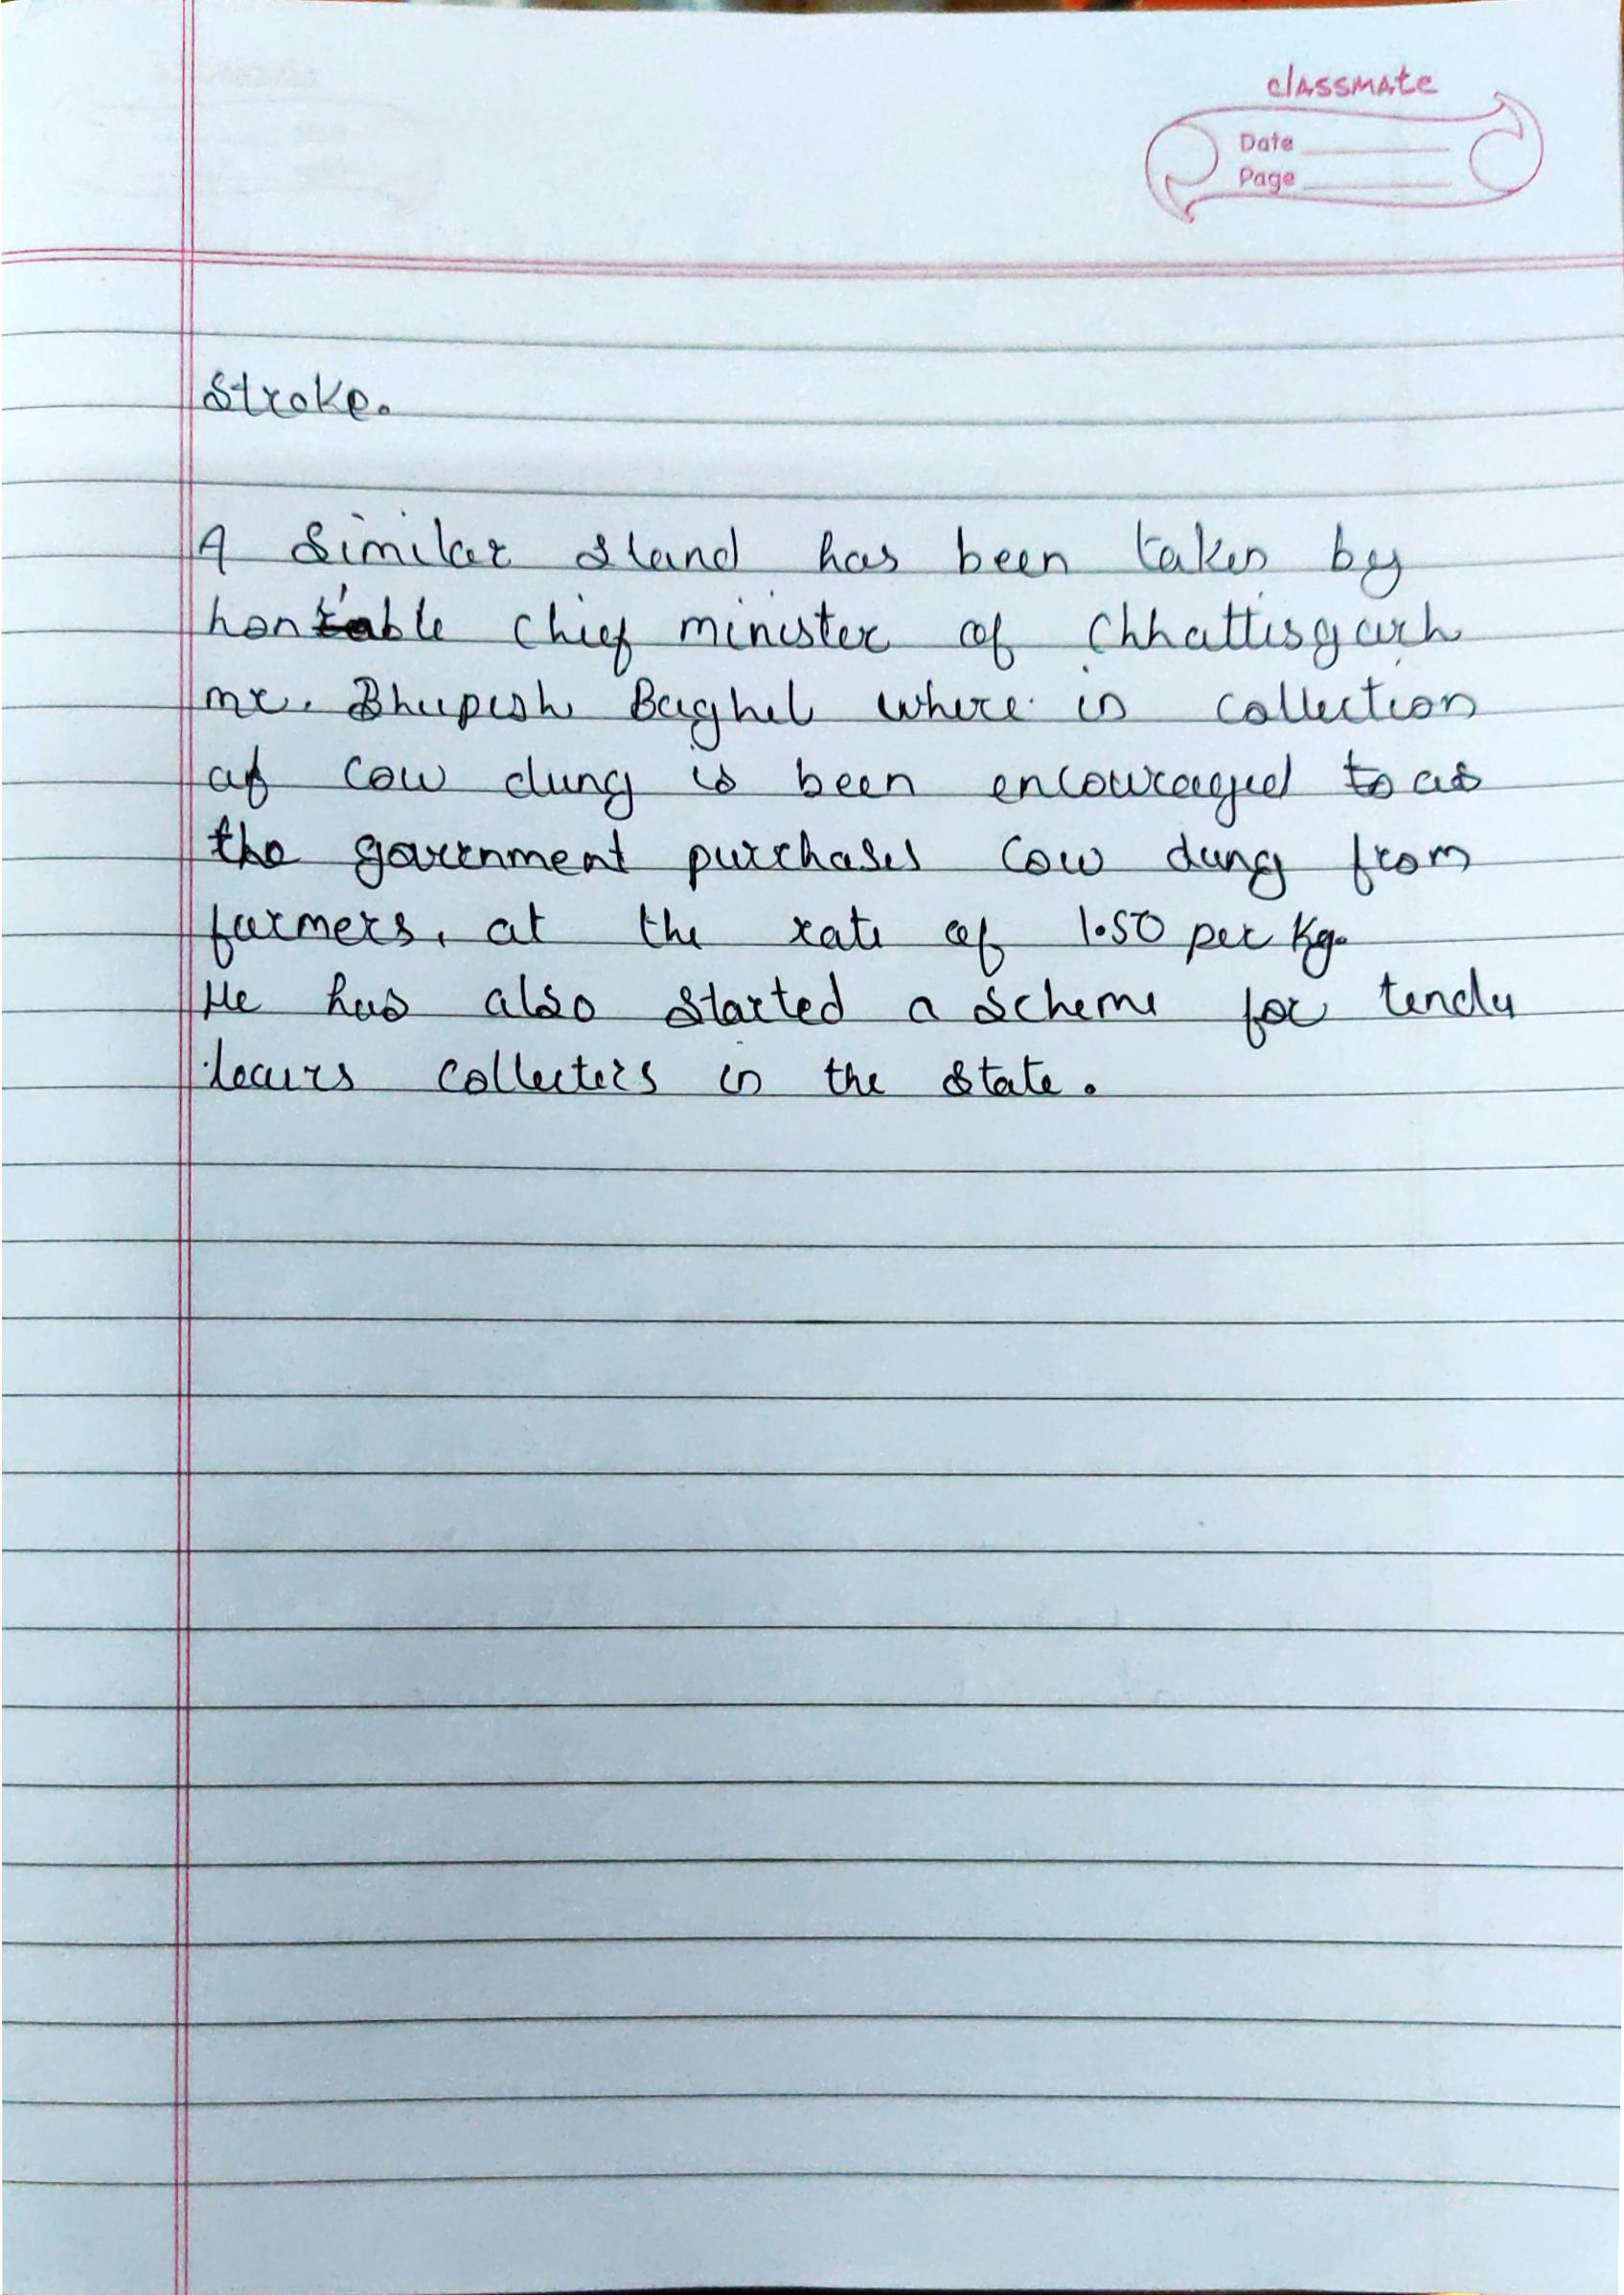 classmate
Date
Page
Stroke.
A similar stand has been taken by
hon'ble chief minister of Chhattisgarh
mr. Bhupesh Baghel where in collection
of cow dung is been encouraged to as
the government purchases cow dung from
farmers, at the rate of 1.50 per kg.
He has also started a scheme for tendu
leaves collecters in the state.